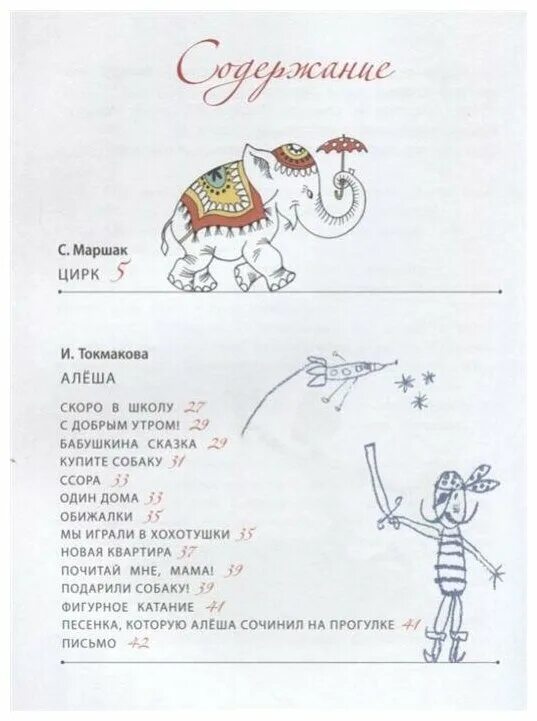 Содержание
С. Маршак
ЦИРК 5
И. Токмакова
АЛЁША
СКОРО В ШКОЛУ 27
С ДОБРЫМ УТРОМ! 29
БАБУШКИНА СКАЗКА 29
КУПИТЕ СОБАКУ 31
ССОРА 33
ОДИН ДОМА 33
ОБИЖАЛКИ 35
МЫ ИГРАЛИ В ХОХОТУШКИ 35
НОВАЯ КВАРТИРА 37
ПОЧИТАЙ МНЕ, МАМА! 39
ПОДАРИЛИ СОБАКУ! 39
ФИГУРНОЕ КАТАНИЕ 41
ПЕСЕНКА, КОТОРУЮ АЛЁША СОЧИНИЛ НА ПРОГУЛКЕ 41
ПИСЬМО 42